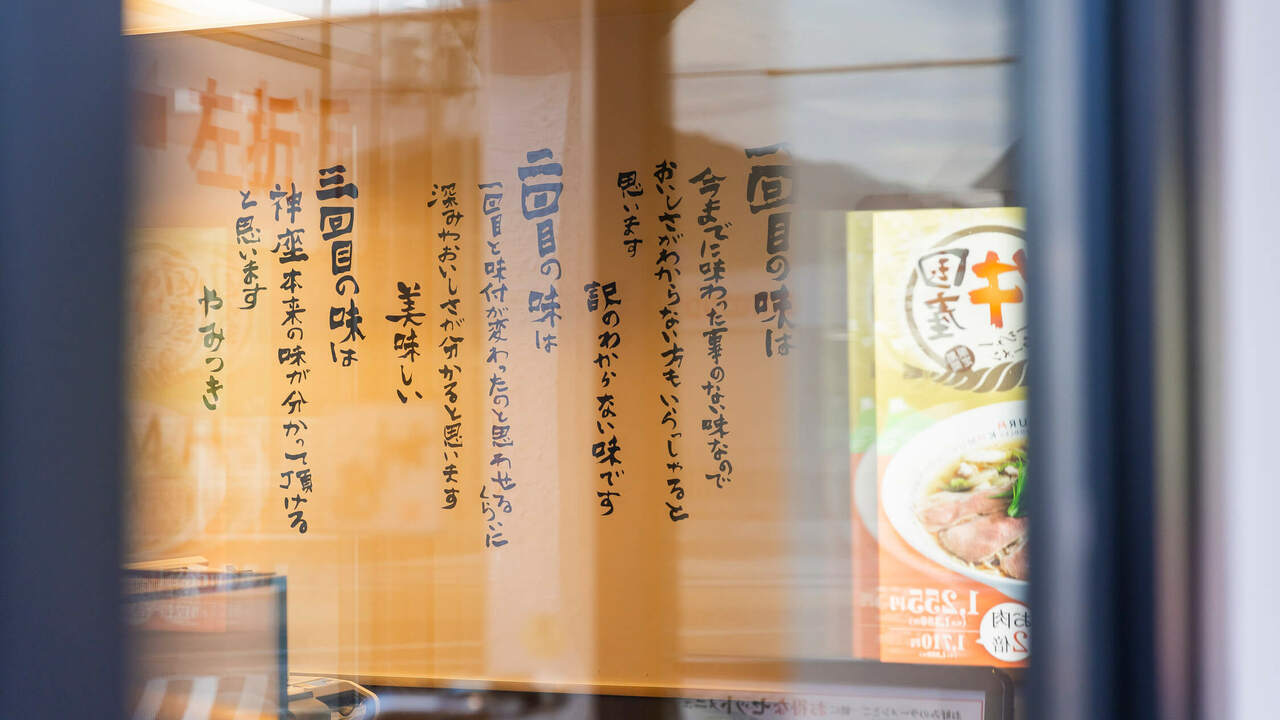 一回目の味は
今までに味わった事のない味なので
おいしさがわからない方もいらっしゃると
思います
訳のわからない味です
二回目の味は
一回目と味付が変わったのと思わせる
くらいに
深みわおいしさが分かると思います
美味しい
三回目の味は
神座本来の味が分かって頂ける
と思います
やみつき
左折
国産
牛
1,255円
1,710円
お肉
2倍
お得なセットメニュ